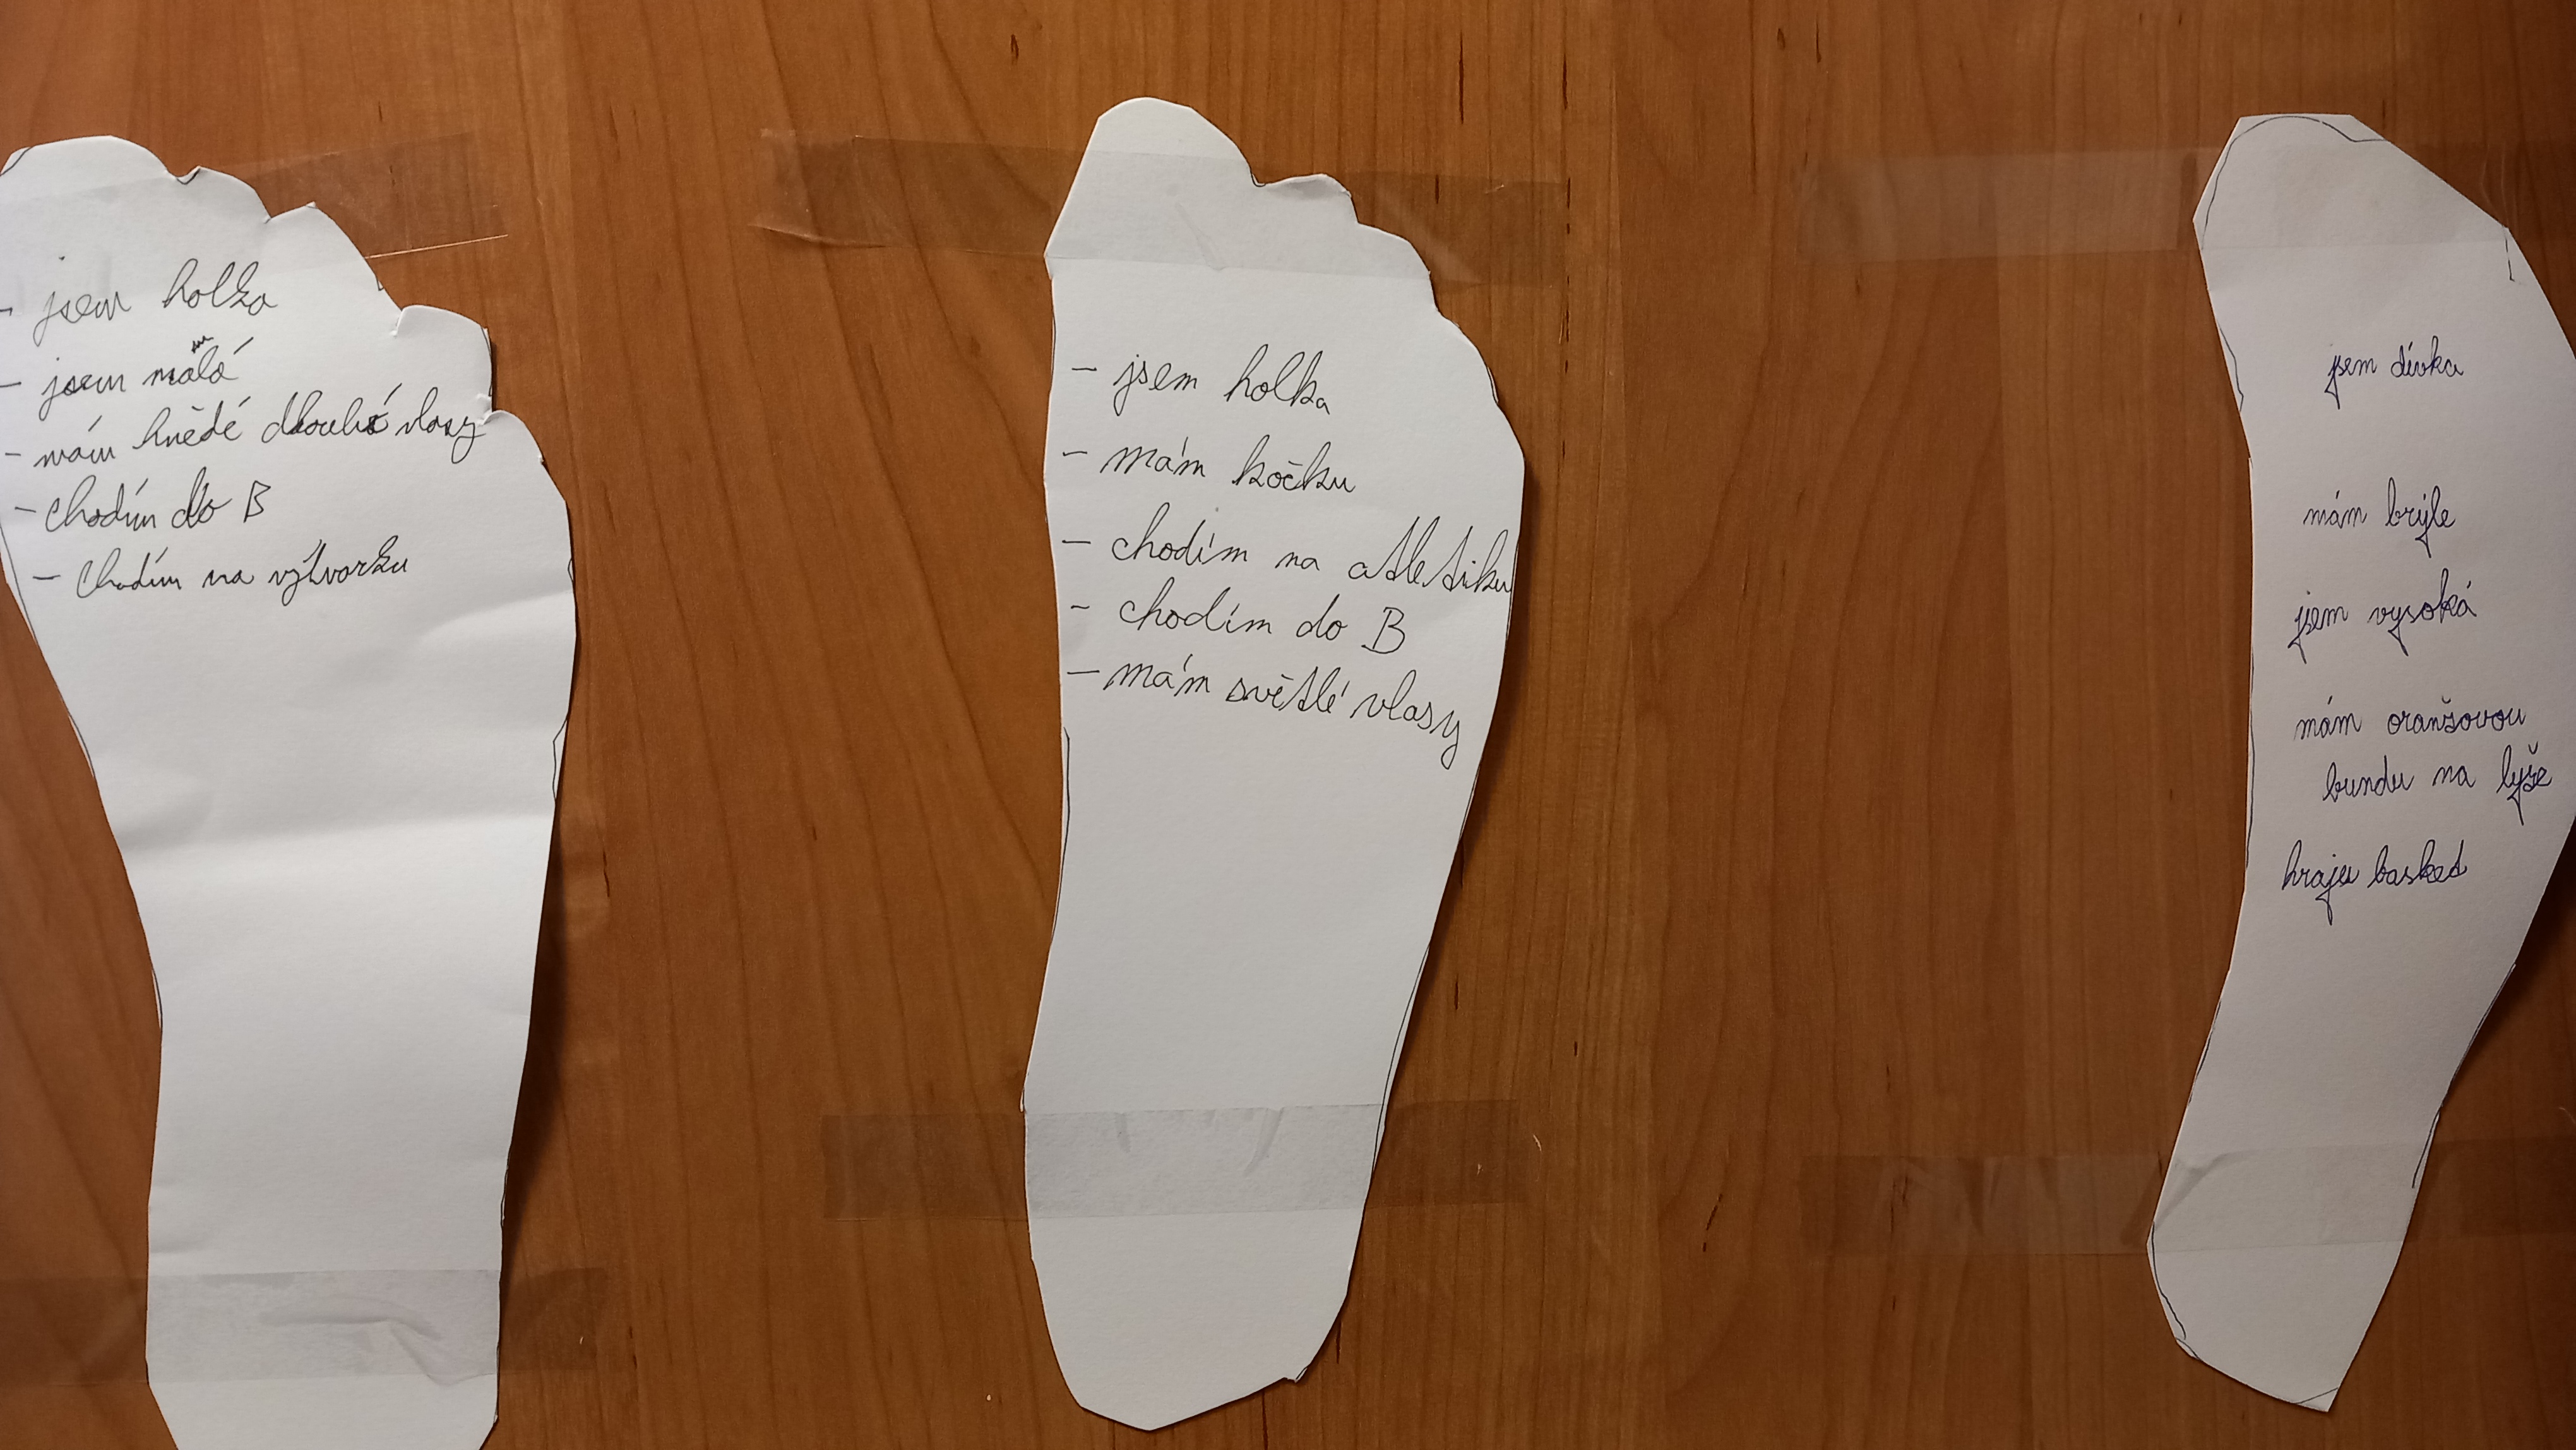 - jsem holka
- jsem malá
- mám hnědé dlouhé vlasy
- chodím do B
- chodím na výtvarku
- jsem holka
- mám kočku
- chodím na atletiku
- chodím do B
- mám světlé vlasy
jsem dívka
mám brýle
jsem vysoká
mám oranžovou
bundu na lyže
hraju basket